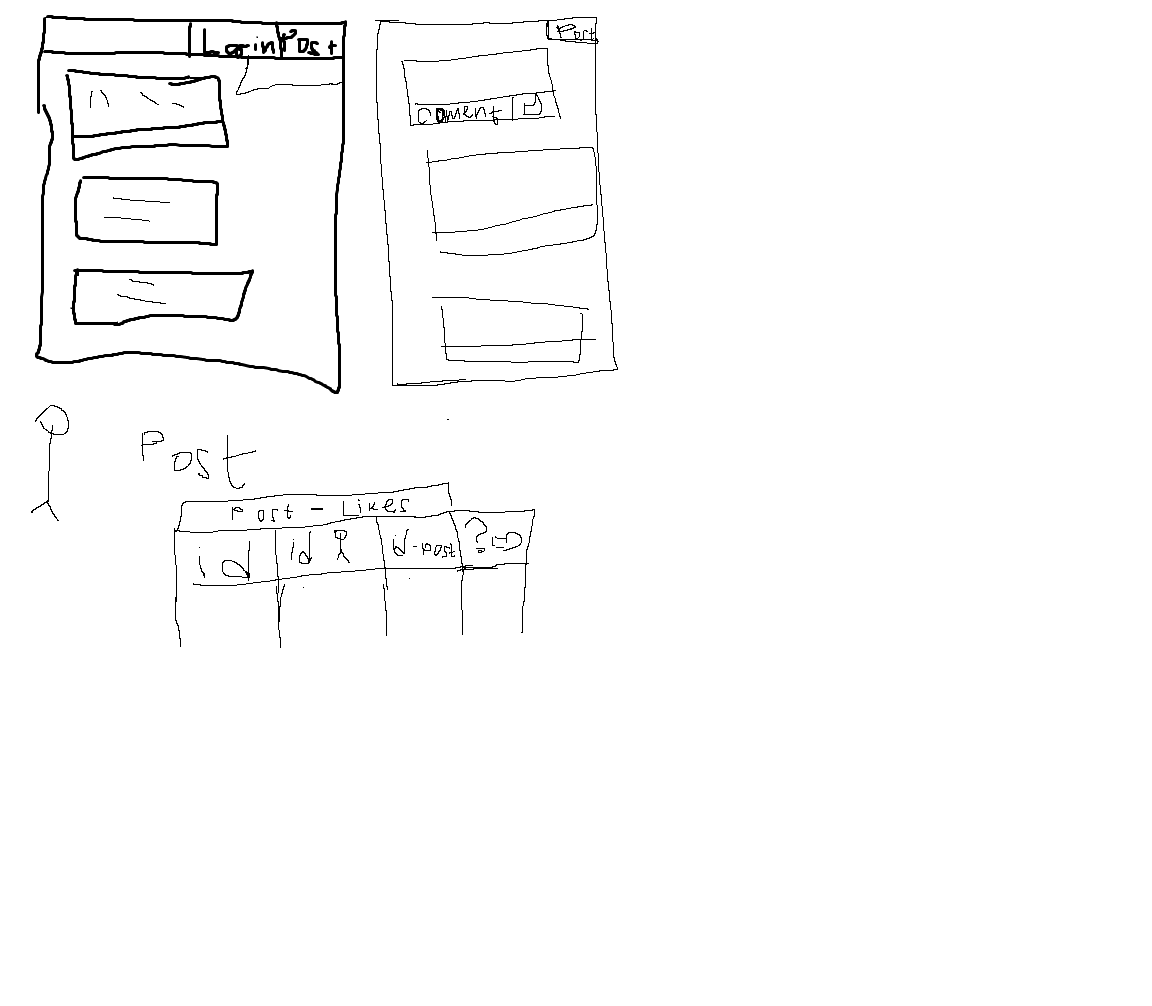 Login Post
Post
Coment
Post
Post - Likes
id id id-post ?